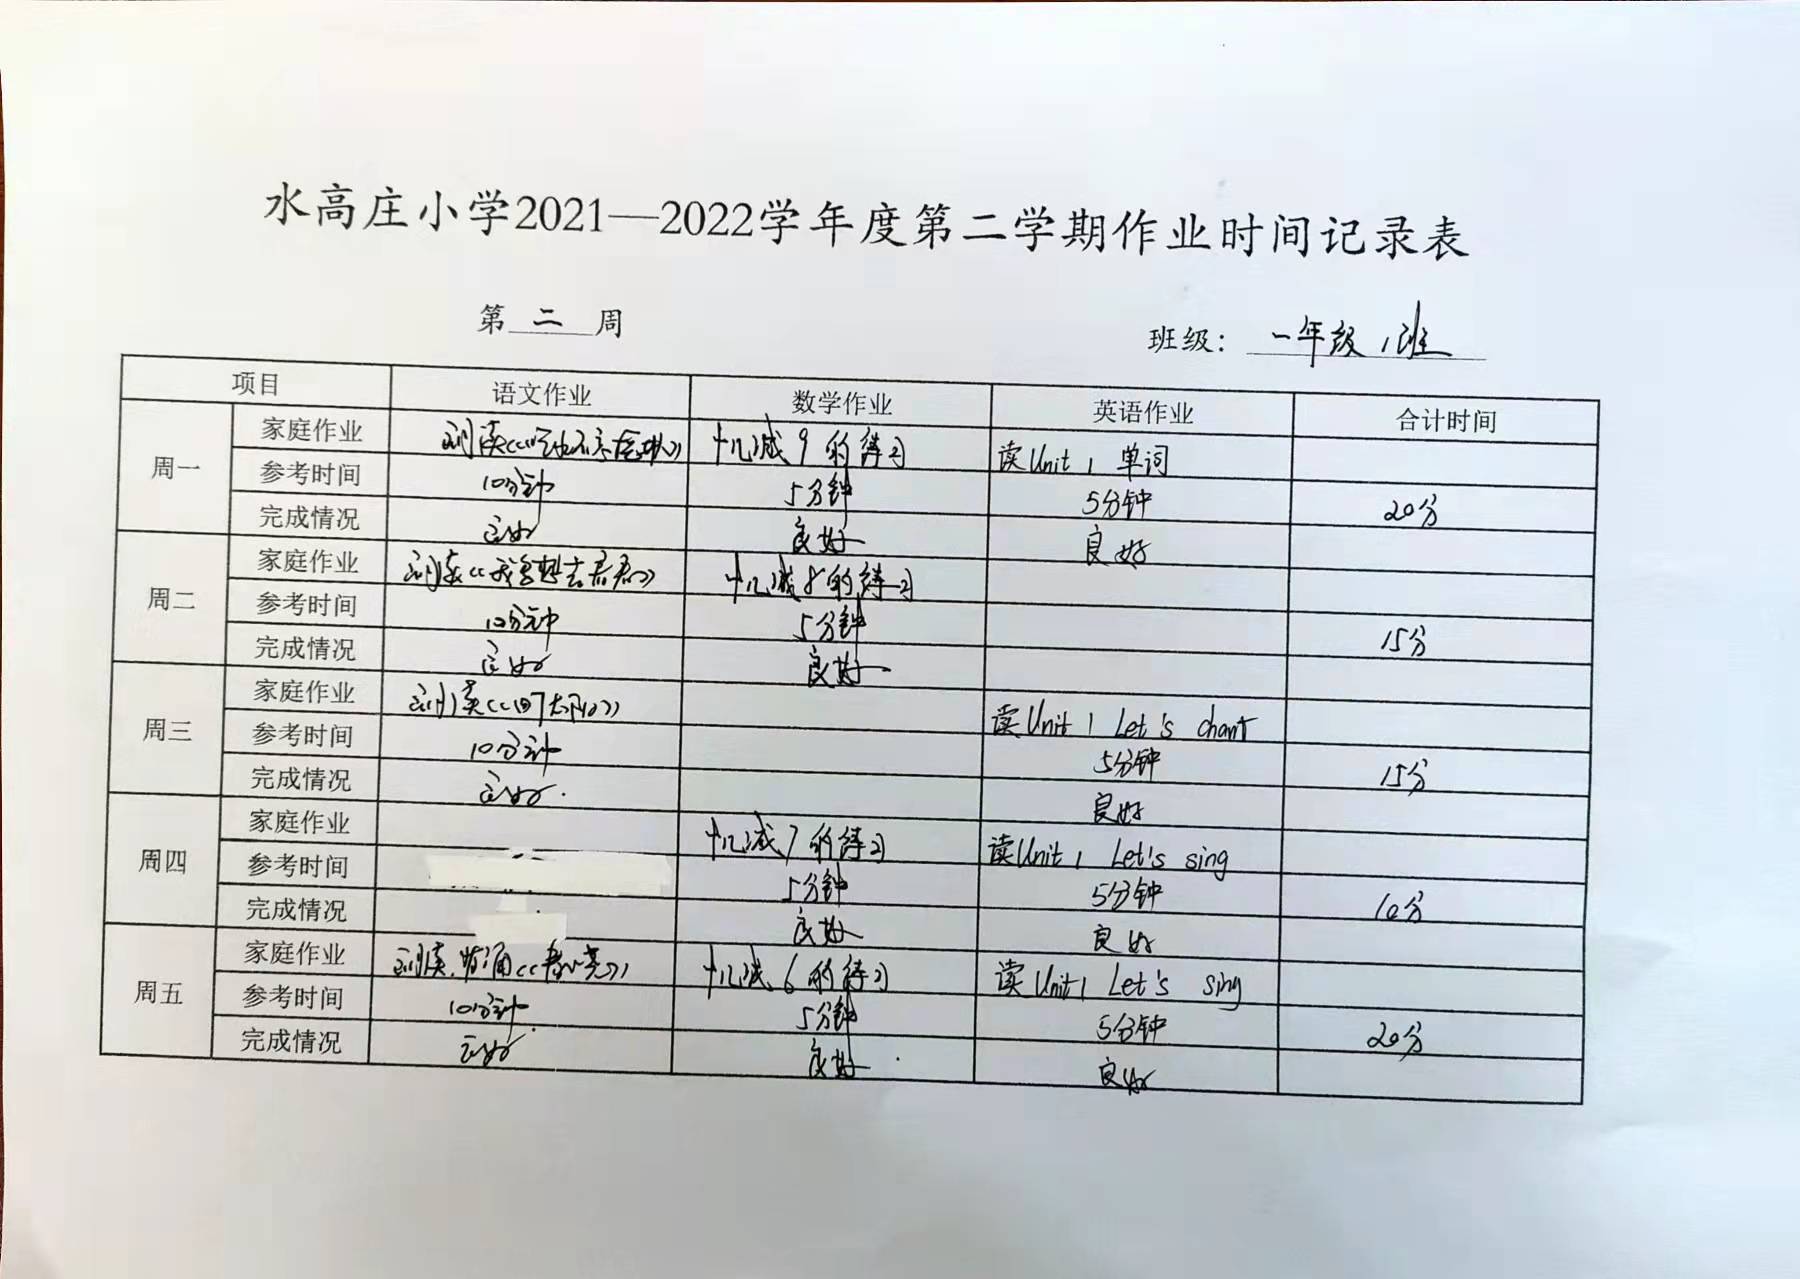 水高庄小学2021—2022学年度第二学期作业时间记录表
第 二 周 班级： 一年级1班
项目 语文作业 数学作业 英语作业 合计时间
周一 家庭作业 朗读 十几减9的练习 读Unit 1 单词
参考时间 10分钟 5分钟 5分钟 20分
完成情况 良好 良好 良好
周二 家庭作业 朗读《我多想去看看》 十几减8的练习
参考时间 10分钟 5分钟 15分
完成情况 良好 良好
周三 家庭作业 朗读《四个太阳》 读Unit 1 Let's chant
参考时间 10分钟 5分钟 15分
完成情况 良好 良好
周四 家庭作业 十几减7的练习 读Unit 1 Let's sing
参考时间 5分钟 5分钟 10分
完成情况 良好 良好
周五 家庭作业 朗读、背诵《春晓》 十几减6的练习 读Unit 1 Let's sing
参考时间 10分钟 5分钟 5分钟 20分
完成情况 良好 良好 良好